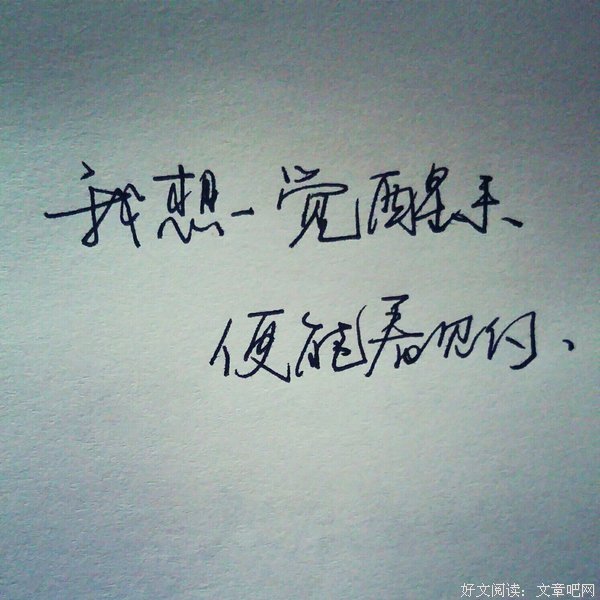 我想一觉醒来、
便能看见你、
好文阅读：文章吧网